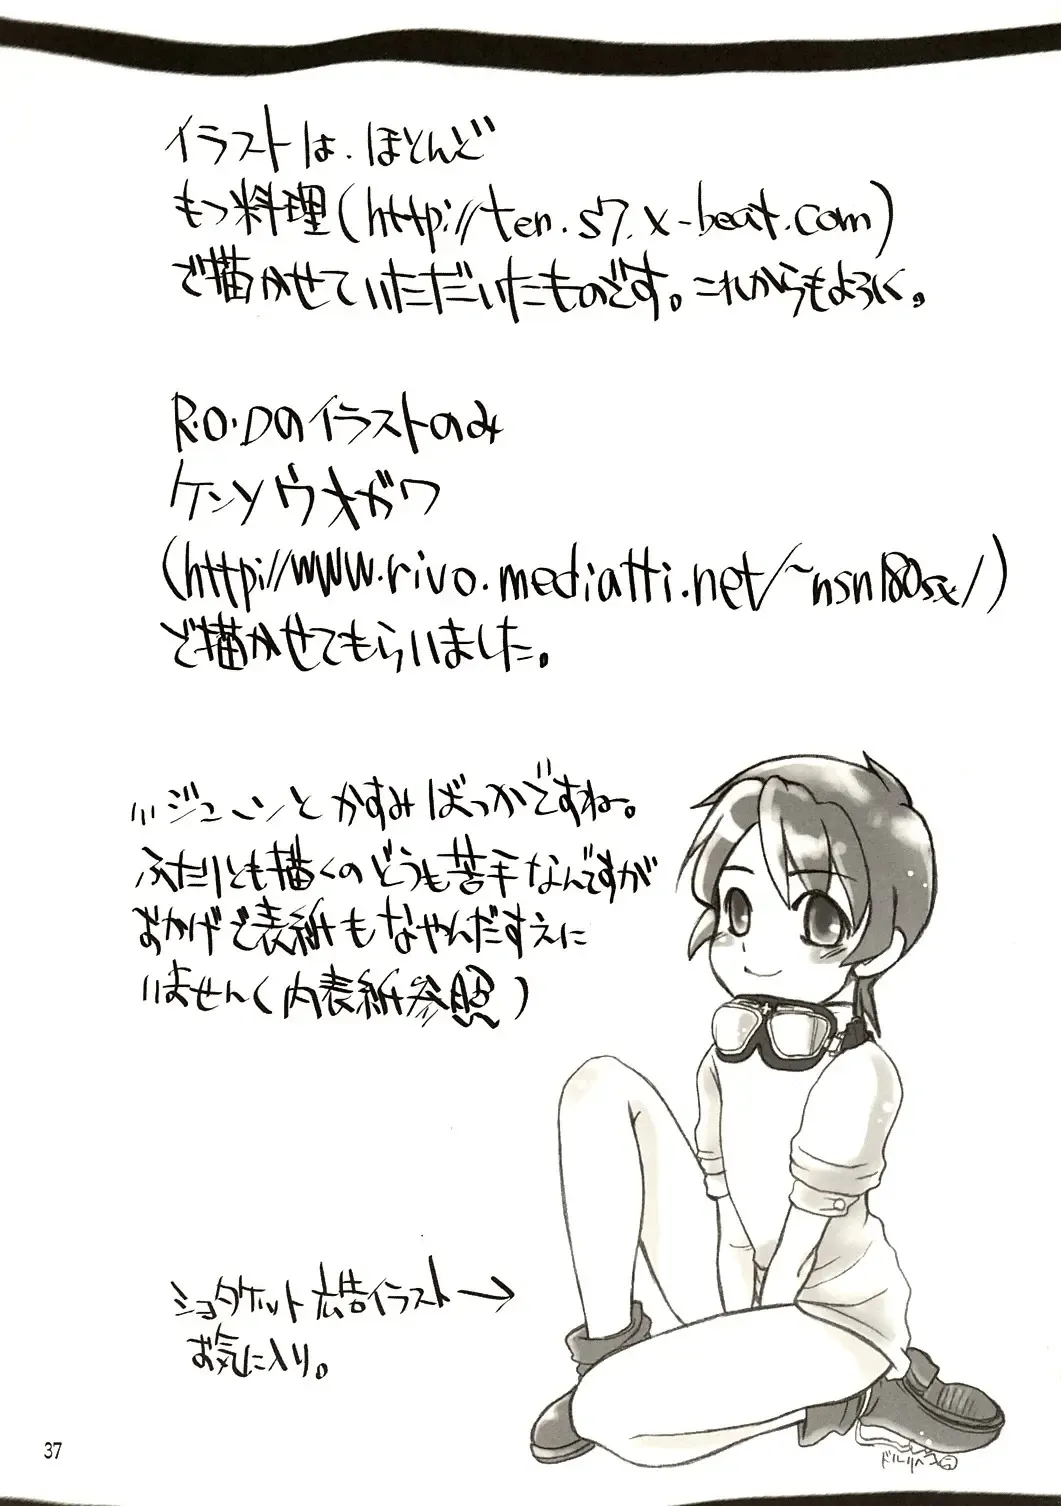 イラストは、ほとんど
もつ料理(http://ten.s7.x-beat.com)
で描かせていただいたものです。これからもよろしく。
R・O・Dのイラストのみ
ケンソウオガワ
(http://www.rivo.mediatti.net/~nsn180sx/)
で描かせてもらいました。
とかすみばっかですねー。
ふたりとも描くのどうも苦手なんですが
おかげで表紙もなやんだすえに
いません(内表紙参照)
ショタケット広告イラスト→
お気に入り。
37